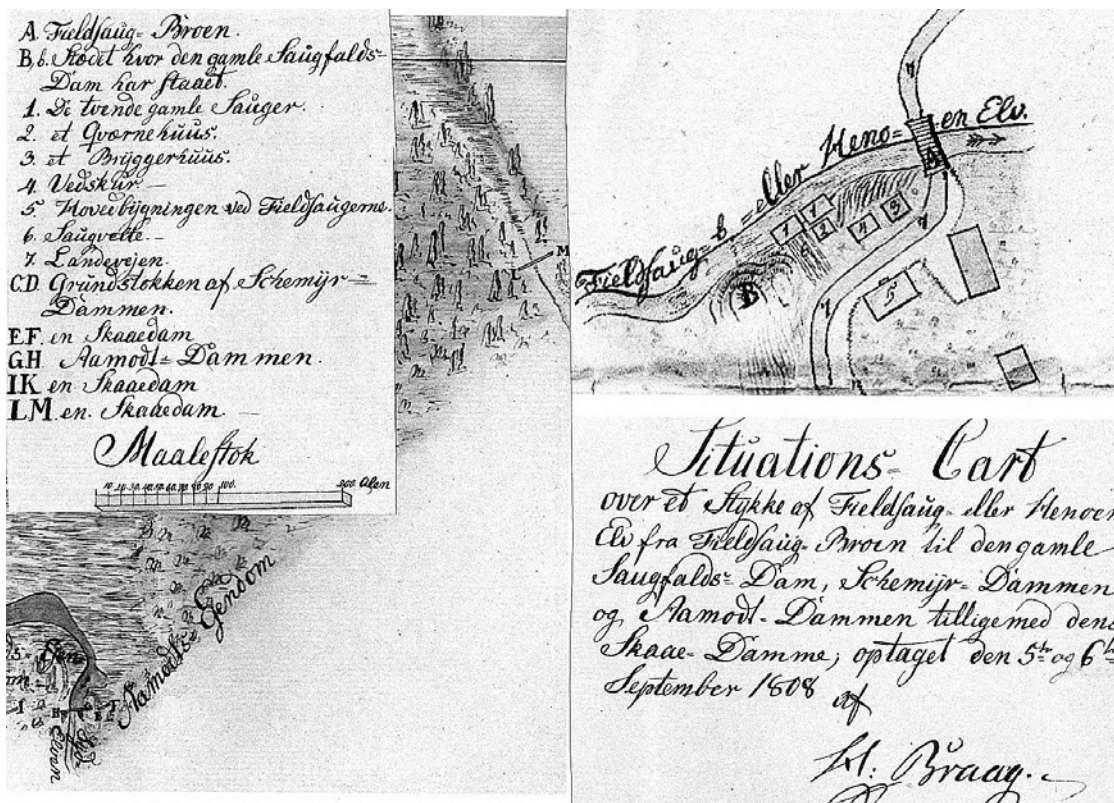 A. Fieldsaug-Broen.
B, b. Stædet hvor den gamle Saugfalds-
Dam har staaet.
1. De tvende gamle Sauger.
2. et Qværnehuus.
3. et Bryggerhuus.
4. Vedskur —
5 Hovedbygningen ved Fieldsaugerne.
6. Saugvelte. —
7. Landevejen.
C.D. Grundstokken af Schemyr=
Dammen.
E.F. en Skaaedam
G.H. Aamodt=Dammen.
IK en Skaaedam
LM en Skaaedam. —
Maalestok
10. 20. 30. 40. 50. 60. 70. 80. 90. 100. 200. Alen
L M
Aamodts Ejendom
I H G E F
Elven
Fieldsaug=b= eller Heno=en Elv.
A
7
1 1
2 4 3
B
7 5
7
Situations= Cart
over et Stykke af Fieldsaug- eller Henoen
Elv fra Fieldsaug-Broen til den gamle
Saugfalds=Dam, Schemyr-Dammen
og Aamodt-Dammen tilligemed dens
Skaae-Damme; optaget den 5te og 6te
September 1808 af
Braag.